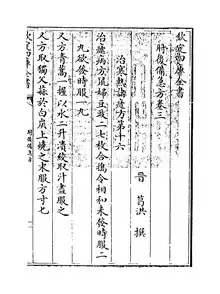 欽定四庫全書
肘後備急方卷三
晉 葛洪 撰
治寒熱諸瘧方第十六
治瘧病方鼠婦豆豉二七枚合擣令相和未發時服二
丸欲發時服一丸
又方青蒿一握以水二升漬絞取汁盡服之
又方取獨父蒜於白炭上燒之末服方寸匕
欽定四庫全書
肘後備急方